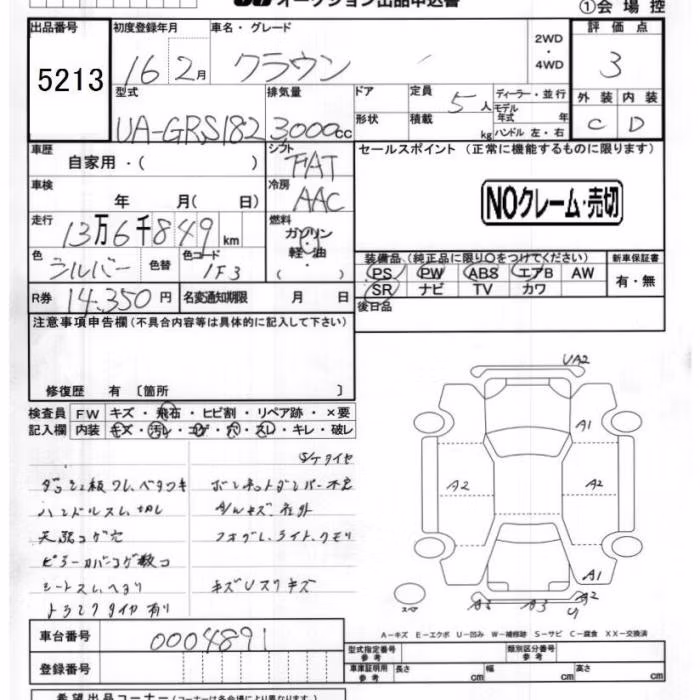 オークション出品申込書
①会場控
出品番号 初度登録年月 車名・グレード 2WD・4WD 評価点
5213 16 2月 クラウン 3
型式 排気量 ドア 定員 5人 ディーラー・並行 外装 内装
UA-GRS182 3000cc 形状 積載 kg モデル年式 年 ハンドル 左・右 C D
車歴 シフト セールスポイント (正常に機能するものに限ります)
自家用・( ) FAT
車検 冷房
年 月( 日) AAC NOクレーム・売切
走行 燃料
13万6千849km ガソリン
軽・油
( ・ )
色 シルバー 色替 色コード 1F3
装備品(純正品に限り○をつけてください) 新車保証書
PS PW ABS エアB AW 有・無
SR ナビ TV カワ
R券 14,350円 名変通知期限 月 日 後日品
注意事項申告欄(不具合内容等は具体的に記入して下さい)
修復歴 有 〔箇所 〕
検査員 FW キズ・飛石・ヒビ割・リペア跡・×要
記入欄 内装 キズ・汚レ・コゲ・穴・スレ・キレ・破レ
S/Tタイヤ
ハンドルスレ、切レ A/Wキズ、社外
天張コゲ穴 フォグL、ライト、クモリ
ピラーカバーコゲ数コ
シートスレ、ヘタリ キズUスリキズ
トランクタイヤ有り
UA2
A1
A2 A2
A1
A2
A3
スペア
A-キズ E-エクボ U-凹み W-補修跡 S-サビ C-腐食 XX-交換済
車台番号 0004891
登録番号
型式指定番号 参考 類別区分番号 参考
車庫証明用 参考 長さ cm 幅 cm 高さ cm
希望出品コーナー(コーナーは各会場により異なります)